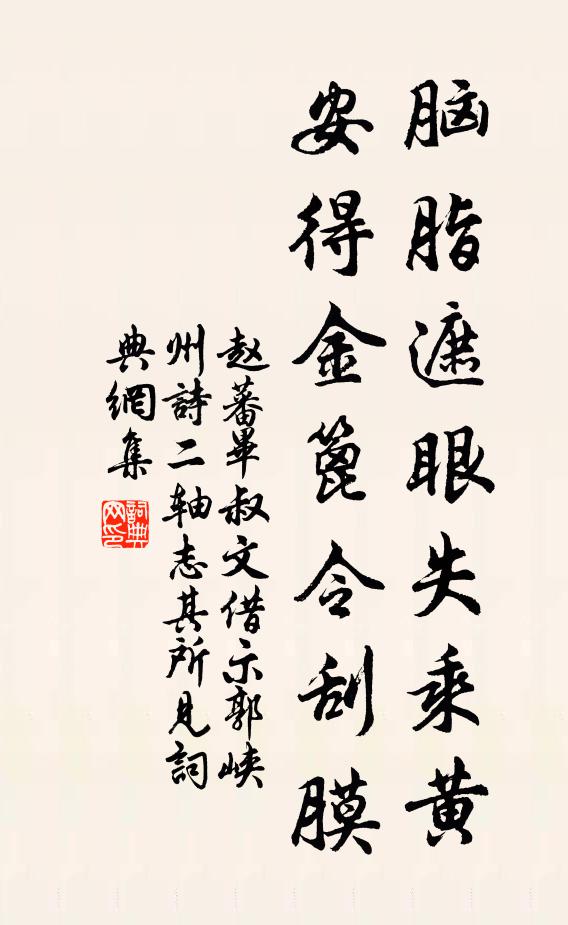 脑脂遮眼失乘黄
安得金篦令刮膜
赵蕃畢叔文借示郭峡
州詩二轴志其所見詞
典網集
詞典网印